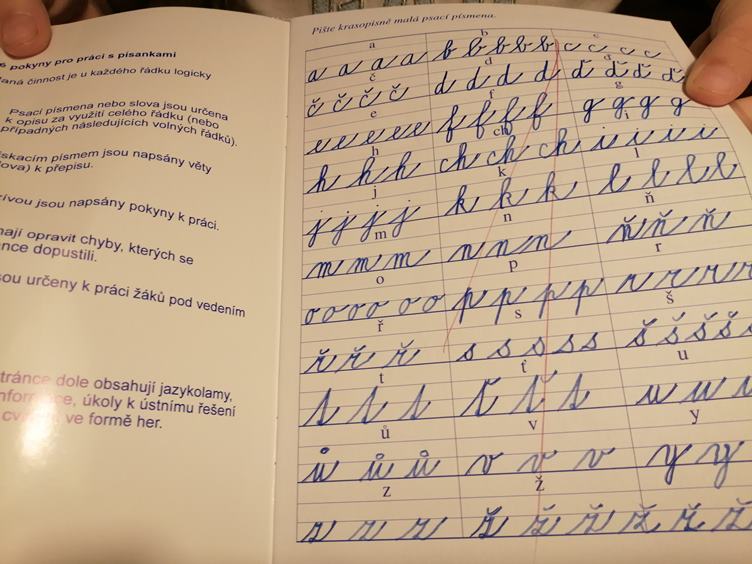 pokyny pro práci s písankami
činnost je u každého řádku logicky
Psací písmena nebo slova jsou určena
k opisu za využití celého řádku (nebo
případných následujících volných řádků).
písmem jsou napsány věty
k přepisu.
jsou napsány pokyny k práci.
opravit chyby, kterých se
dopustili.
jsou určeny k práci žáků pod vedením
dole obsahují jazykolamy,
informace, úkoly k ústnímu řešení
ve formě her.
Pište krasopisně malá psací písmena.
a b c
a a a a b b b b b c c c c c
č d ď
č č č č d d d d ď ď ď ď
e f g
e e e e e f f f f g g g g
h ch i
h h h ch ch ch i i i i i
j k l
j j j j k k k l l l l
m n ň
m m m n n n ň ň ň
o p r
o o o o o o p p p p r r r r
ř s š
ř ř ř s s s s s š š š š
t ť u
t t t ť ť ť u u u
ů v y
ů ů ů v v v y y
z ž
z z z ž ž ž ž ž ž